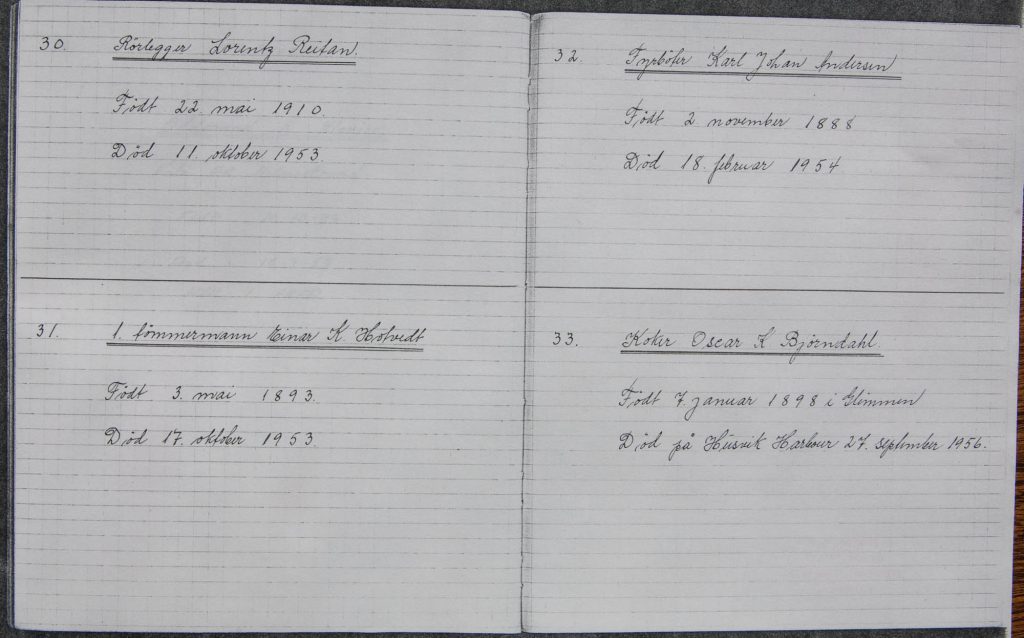 30. Rörlegger Lorentz Reitan.
Födt 22. mai 1910.
Död 11. oktober 1953.
31. 1. tömmermann Einar K. Hotvedt
Födt 3. mai 1893.
Död 17. oktober 1953.
32. Fyrböter Karl Johan Andersen
Födt 2. november 1888
Död 18. februar 1954
33. Koker Oscar K Björndahl.
Födt 7. januar 1898 i Glimmen
Död på Husvik Harbour 27. september 1956.